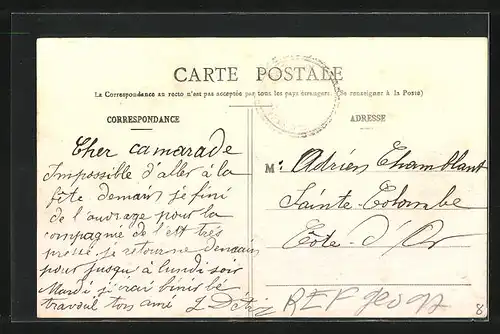 CARTE POSTALE
La Correspondance au recto n'est pas acceptée par tous les pays étrangers. (Se renseigner à la Poste)
CORRESPONDANCE
Cher camarade
Impossible d'aller à la
fête demain je fini
de l'ouvrage pour la
compagnie de l'est très
pressé je retourne demain
pour jusqu'à lundi soir
Mardi j'irai finir le
travail ton ami L
ADRESSE
M. Adrien Chamblant
Sainte-Colombe
Côte-d'Or
REF
8